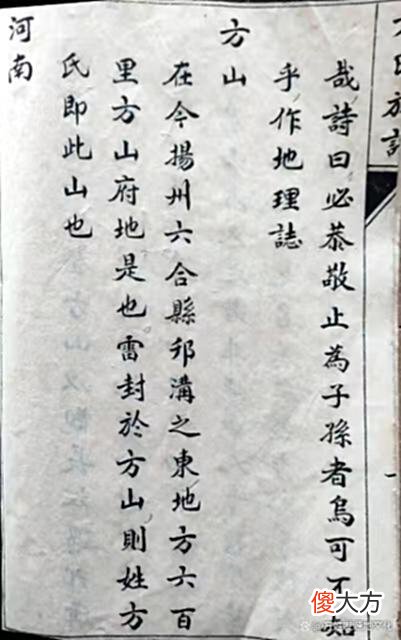 方氏族
哉詩曰必恭敬止為子孫者烏可不知
乎作地理誌
方山
在今揚州六合縣邗溝之東地方六百
里方山府地是也雷封於方山則姓方
氏即此山也
河南
傻大方